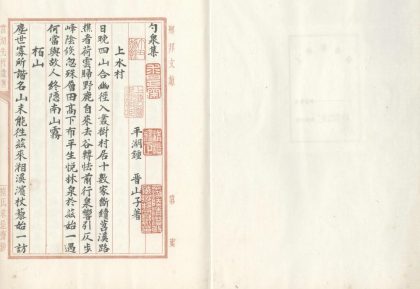 勺泉集
平湖鍾 晉山子著
上水村
日晚四山合幽徑入叢樹村居十數家斷續菖溪路
樵者荷雲歸野鹿自來去谷轉怯前行泉響引仄步
峰陰倏忽殊層田高下布平生悅林泉於茲始一遇
何當與故人終隱南山霧
栢山
塵世寡所諧名山未能往茲來湘溪濱杖藜始一訪